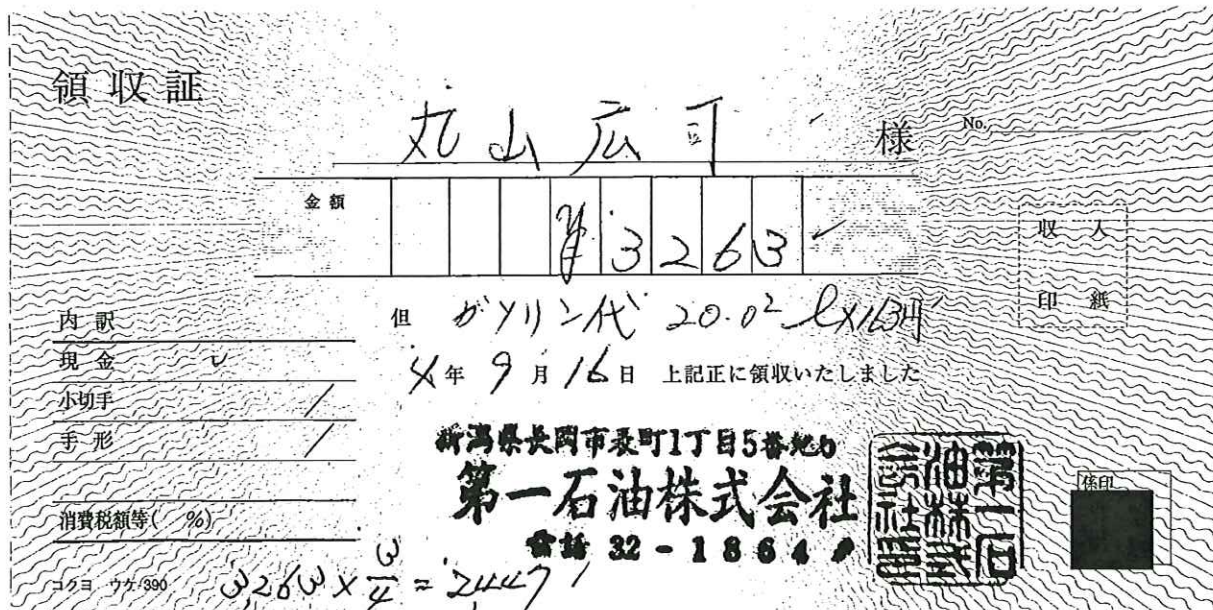 領収証
丸山広司 様
No.
金額 ¥3263
収入
印紙
但 ガソリン代 20.02ℓ×163円
4年9月16日 上記正に領収いたしました
内訳
現金 レ
小切手
手形
消費税額等( %)
新潟県長岡市表町1丁目5番地6
第一石油株式会社
電話 32-1864
第一石油株式会社
係印
コクヨ ウケ-390
3,263×3/4=2447